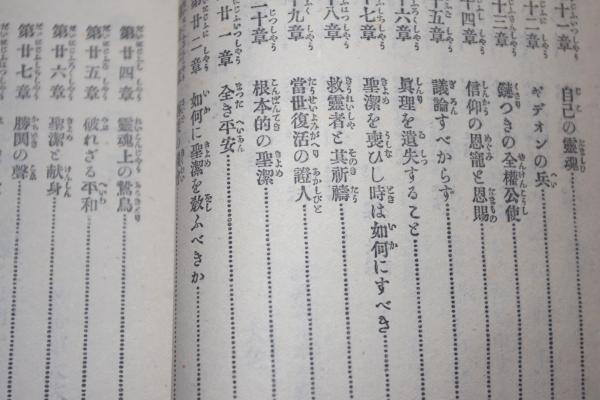 十一章 自己の靈魂
十二章 ギデオンの兵
十三章 鏈つきの全權公使
十四章 信仰の恩寵と恩賜
十五章 議論すべからず
十六章 眞理を遺失すること
十七章 聖潔を喪ひし時は如何にすべき
十八章 救靈者と其祈禱
十九章 當世復活の證人
二十章 根本的の聖潔
廿一章 全き平安
第廿二章 如何に聖潔を敎ふべきか
第廿四章 靈魂上の鷙鳥
第廿五章 破れざる平和
第廿六章 聖潔と献身
第廿七章 勝鬨の聲